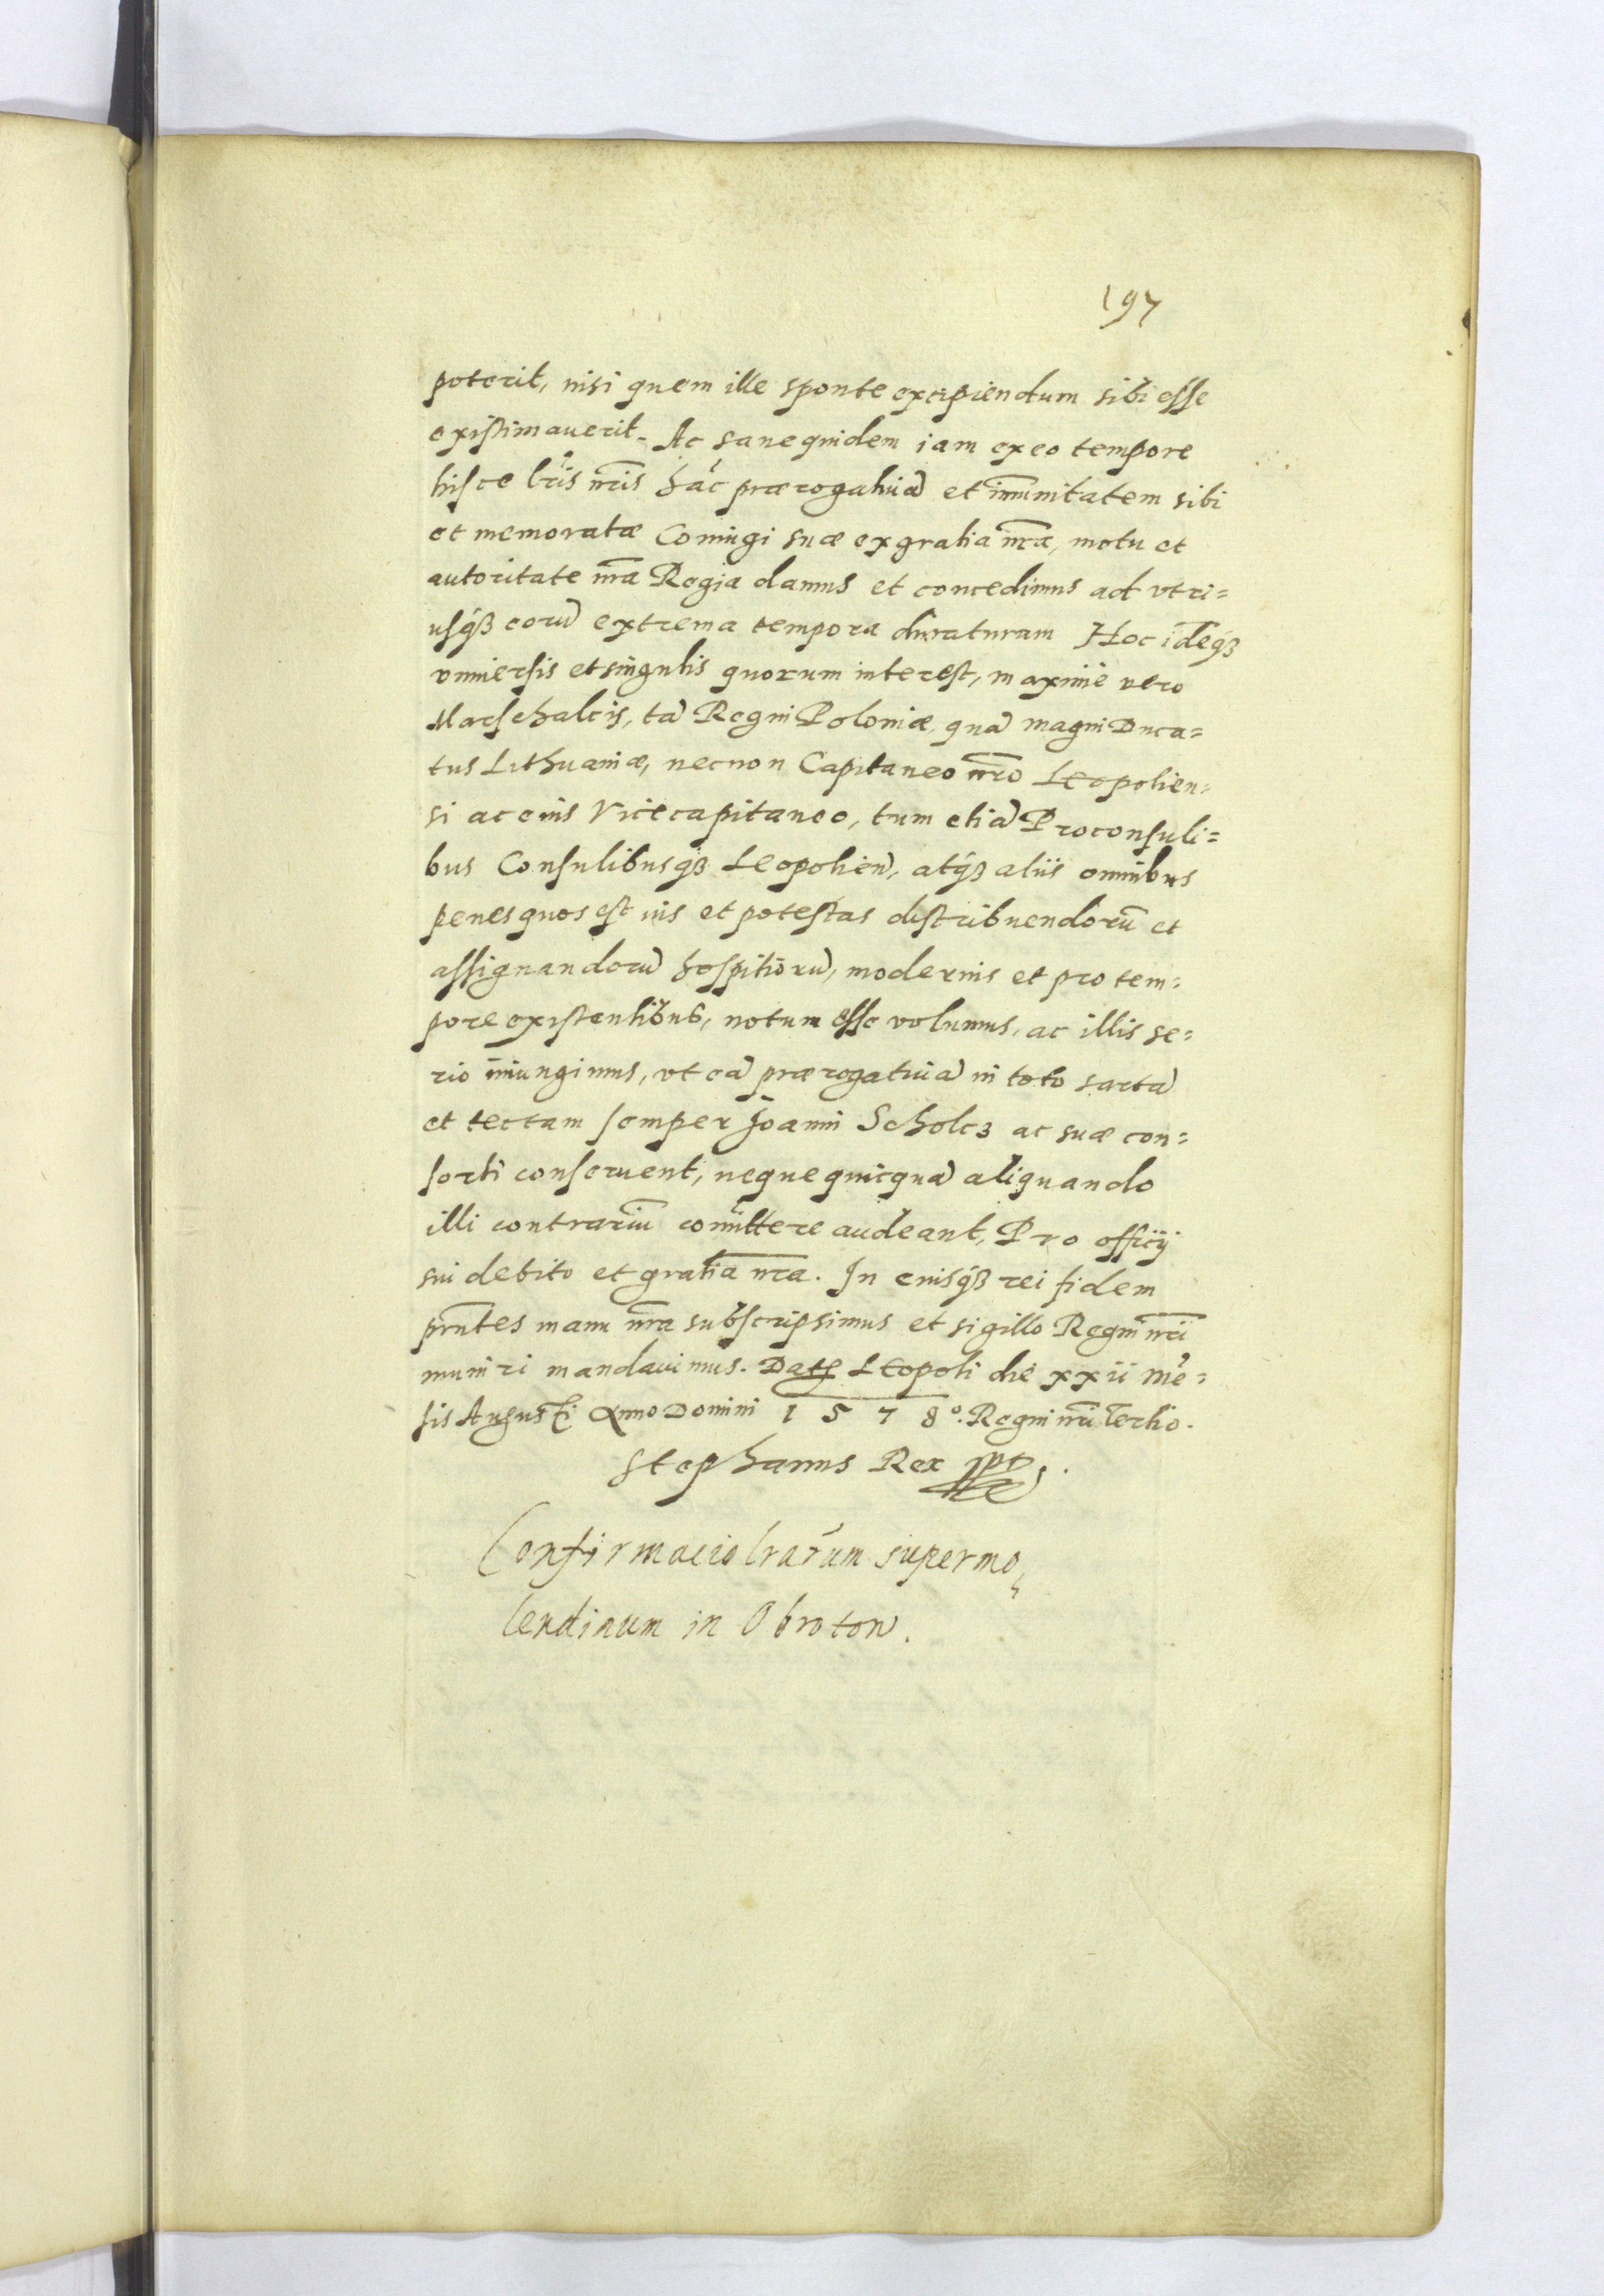 197
poterit, nisi quem ille sponte excipiendum sibi esse
existimauerit. Ac sane quidem iam ex eo tempore
hisce lr̃is nr̃is hãc prærogatiuã et im̃unitatem sibi
et memoratæ Coniugi suæ ex gratia nr̃a, motu et
autoritate nr̃a Regia damus et concedimus ad vtri=
usqȝ eorũ extrema tempora duraturam Hoc idẽqȝ
vniuersis et singulis quorum interest, maximè vero
Marschalcis, tã Regni Poloniæ, quã magni Duca=
tus Lithuaniæ, necnon Capitaneo nr̃o Leopolien=
si ac eius Vicecapitaneo, tum etiã Proconsuli=
bus Consulibusqȝ Leopolien̄, atqȝ aliis omnibus
penes quos est uis et potestas distribuendorũ et
assignandorũ hospitiorũ, modernis et pro tem=
pore existentibus, notum esse volumus, ac illis se=
rio iniungimus, vt eã prærogatiuã in toto sartã
et tectam semper Joanni Scholcȝ ac suæ con=
sorti conseruent, neque quicquã aliquando
illi contrariũ com̃ittere audeant, Pro officij
sui debito et gratia nr̃a. In cuiusqȝ rei fidem
pr̃ntes manu nr̃a subscripsimus et sigillo Regni nr̃i
muniri mandauimus. Datę Leopoli die xxii mẽ=
sis Augusti Anno Domini 1 5 7 8º. Regni nr̃i Tertio.
Stephanus Rex sst.
Confirmacio lrarum super mo,
lendinum in Obroton.